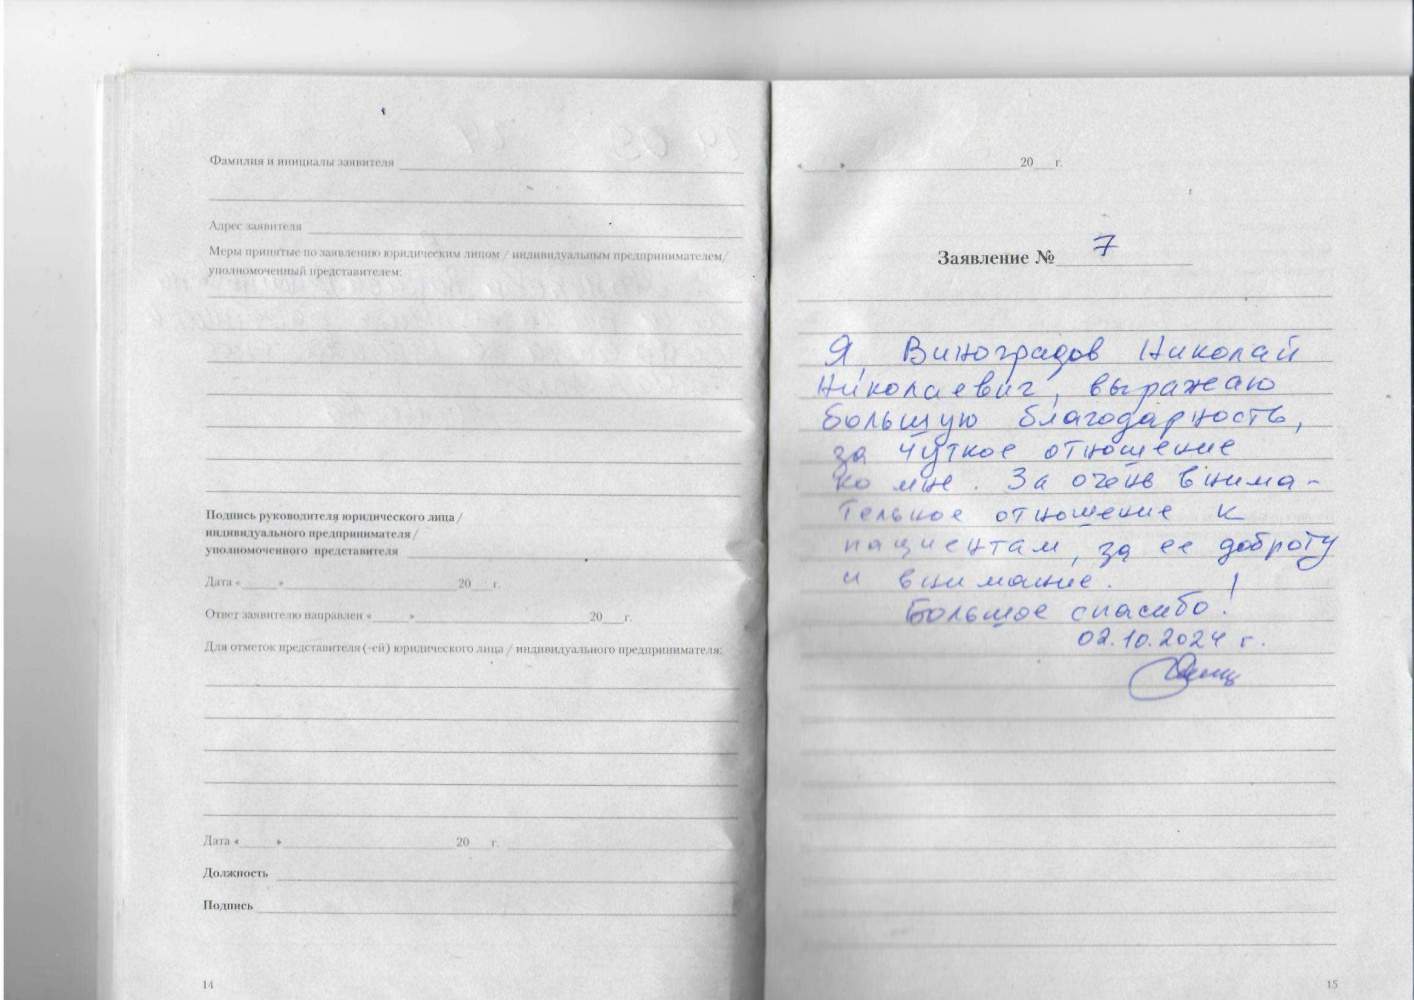 Фамилия и инициалы заявителя
Адрес заявителя
Меры принятые по заявлению юридическим лицом / индивидуальным предпринимателем/
уполномоченный представителем:
Подпись руководителя юридического лица /
индивидуального предпринимателя /
уполномоченного представителя
Дата «____» ____ 20__г.
Ответ заявителю направлен «____» ____ 20__г.
Для отметок представителя (-ей) юридического лица / индивидуального предпринимателя:
Дата «____» ____ 20__г.
Должность
Подпись
14
«____» ____ 20__г.
Заявление № 7
Я, Виноградов Николай
Николаевич, выражаю
большую благодарность,
за чуткое отношение
ко мне. За очень внима-
тельное отношение к
пациентам, за ее доброту
и внимание.
Большое спасибо!
02.10.2024 г.
15